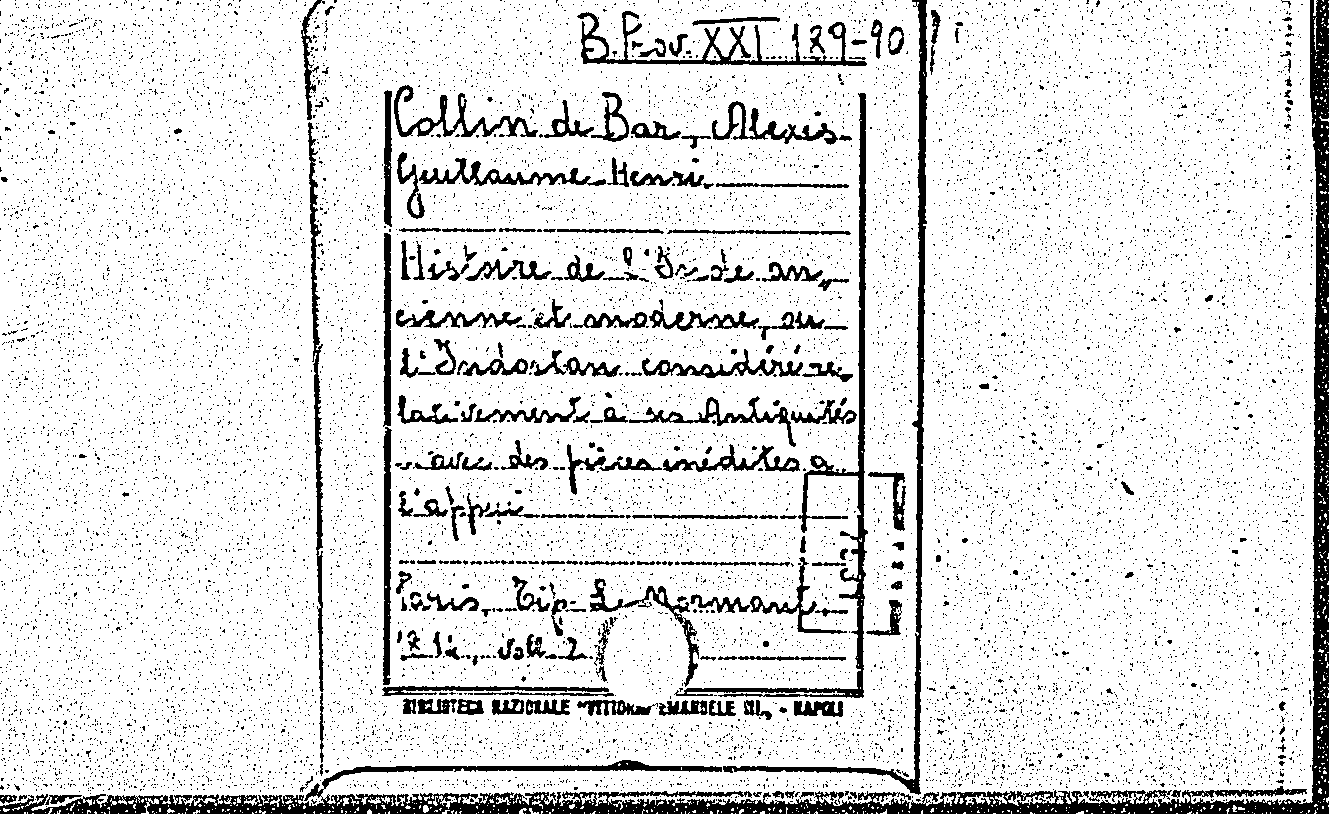 B. Prov. XXI 189-90
Collin de Bar, Alexis-
Guillaume-Henri
Histoire de l'Inde an„
cienne et moderne, ou
l'Indostan considéré re„
lativement à ses Antiquités
... avec des pièces inédites a
l'appui
Paris, Tip. Le Normant,
voll. 2
BIBLIOTECA NAZIONALE "VITTORIO EMANUELE III„ - NAPOLI